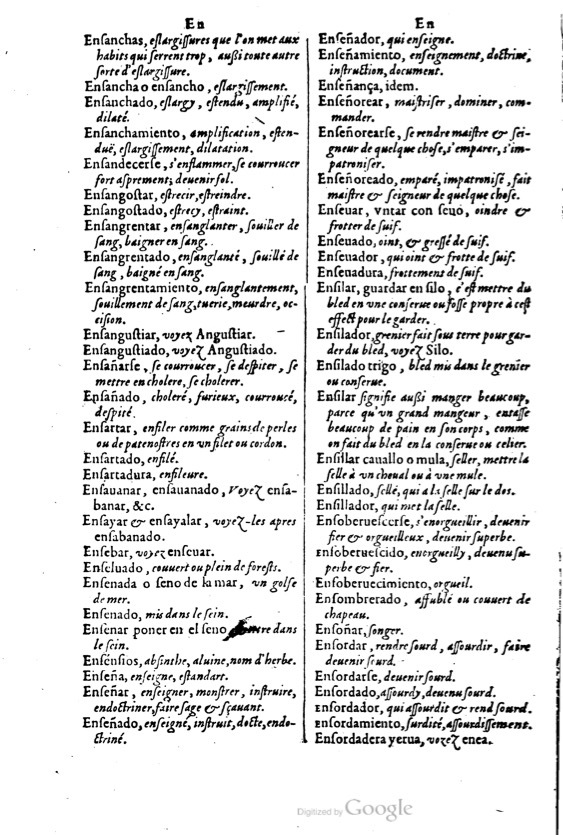 En
Ensanchas, eslargissures que l'on met aux
habits qui serrent trop, außi toute autre
sorte d'eslargissure.
Ensancha o ensancho, eslargissement.
Ensanchado, eslargy, estendu, amplifié,
dilaté.
Ensanchamiento, amplification, esten-
duë, eslargissement, dilatation.
Ensandecerse, s'enflammer, se courroucer
fort asprement; deuenir sol.
Ensangostar, estrecir, estreindre.
Ensangostado, estrecy, estraint.
Ensangrentar, ensanglanter, souiller de
sang, baigner en sang.
Ensangrentado, ensanglanté, souillé de
sang, baigné en sang.
Ensangrentamiento, ensanglantement,
souillement de sang, tuerie, meurdre, oc-
cision.
Ensangustiar, voyez Angustiar.
Ensangustiado, voyez Angustiado.
Ensañarse, se courroucer, se despiter, se
mettre en cholere, se cholerer.
Ensañado, choleré, furieux, courroucé,
despité.
Ensartar, enfiler comme grains de perles
ou de patenostres en vn filet ou cordon.
Ensartado, enfilé.
Ensartadura, enfileure.
Ensauanar, ensauanado, Voyez ensa-
banar, &c.
Ensayar & ensayalar, voyez-les apres
ensabanado.
Ensebar, voyez enseuar.
Enseluado, couuert ou plein de forests.
Ensenada o seno de la mar, vn golfe
de mer.
Ensenado, mis dans le sein.
Ensenar poner en el seno dans
le sein.
Ensensios, absinthe, aluine, nom d'herbe.
Enseña, enseigne, estandart.
Enseñar, enseigner, monstrer, instruire,
endoctriner, faire sage & sçauant.
Enseñado, enseigné, instruit, docte, endo-
ctriné.
En
Enseñador, qui enseigne.
Enseñamiento, enseignement, doctrine,
instruction, document.
Enseñança, idem.
Enseñorear, maistriser, dominer, com-
mander.
Enseñorearse, se rendre maistre & sei-
gneur de quelque chose, s'emparer, s'im-
patroniser.
Enseñoreado, emparé, impatronisé, fait
maistre & seigneur de quelque chose.
Enseuar, vntar con seuo, oindre &
frotter de suif.
Enseuado, oint, & gressé de suif.
Enseuador, qui oint & frotte de suif.
Enseuadura, frottement de suif.
Ensilar, guardar en silo, c'est mettre du
bled en vne conserue ou fosse propre à cest
effect pour le garder.
Ensilador, grenier fait sous terre pour gar-
der du bled, voyez Silo.
Ensilado trigo, bled mis dans le grenier
ou conserue.
Ensilar signifie außi manger beaucoup,
parce qu'vn grand mangeur, entasse
beaucoup de pain en son corps, comme
on fait du bled en la conserue ou celier.
Ensillar cauallo o mula, seller, mettre la
selle à vn cheual ou à vne mule.
Ensillado, sellé, qui a la selle sur le dos.
Ensillador, qui met la selle.
Ensoberuescerse, s'enorgueillir, deuenir
fier & orgueilleux, deuenir superbe.
Ensoberuescido, enorgueilly, deuenu su-
perbe & fier.
Ensoberuecimiento, orgueil.
Ensombrerado, affublé ou couuert de
chapeau.
Ensoñar, songer.
Ensordar, rendre sourd, assourdir, faire
deuenir sourd.
Ensordarse, deuenir sourd.
Ensordado, assourdy, deuenu sourd.
Ensordador, qui assourdit & rend sourd.
Ensordamiento, surdité, assourdissement.
Ensordadera yerua, voyez enea.
Digitized by Google